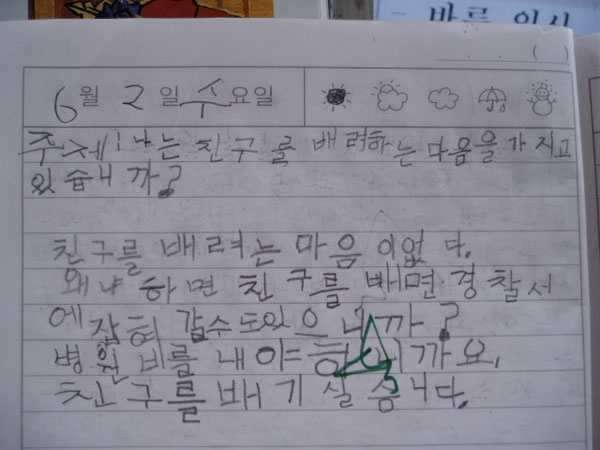 바른 인사
( )
6월 2일 수요일
주제! 나는 친구를 배려하는 마음을 가지고
있습니까?
친구를 배려는 마음이 없다.
왜냐하면 친구를 배면 경찰서
에 잡혀 갈수도있으니까?
병원비를 내야 하니까요,
친구를 배기 실습니다.